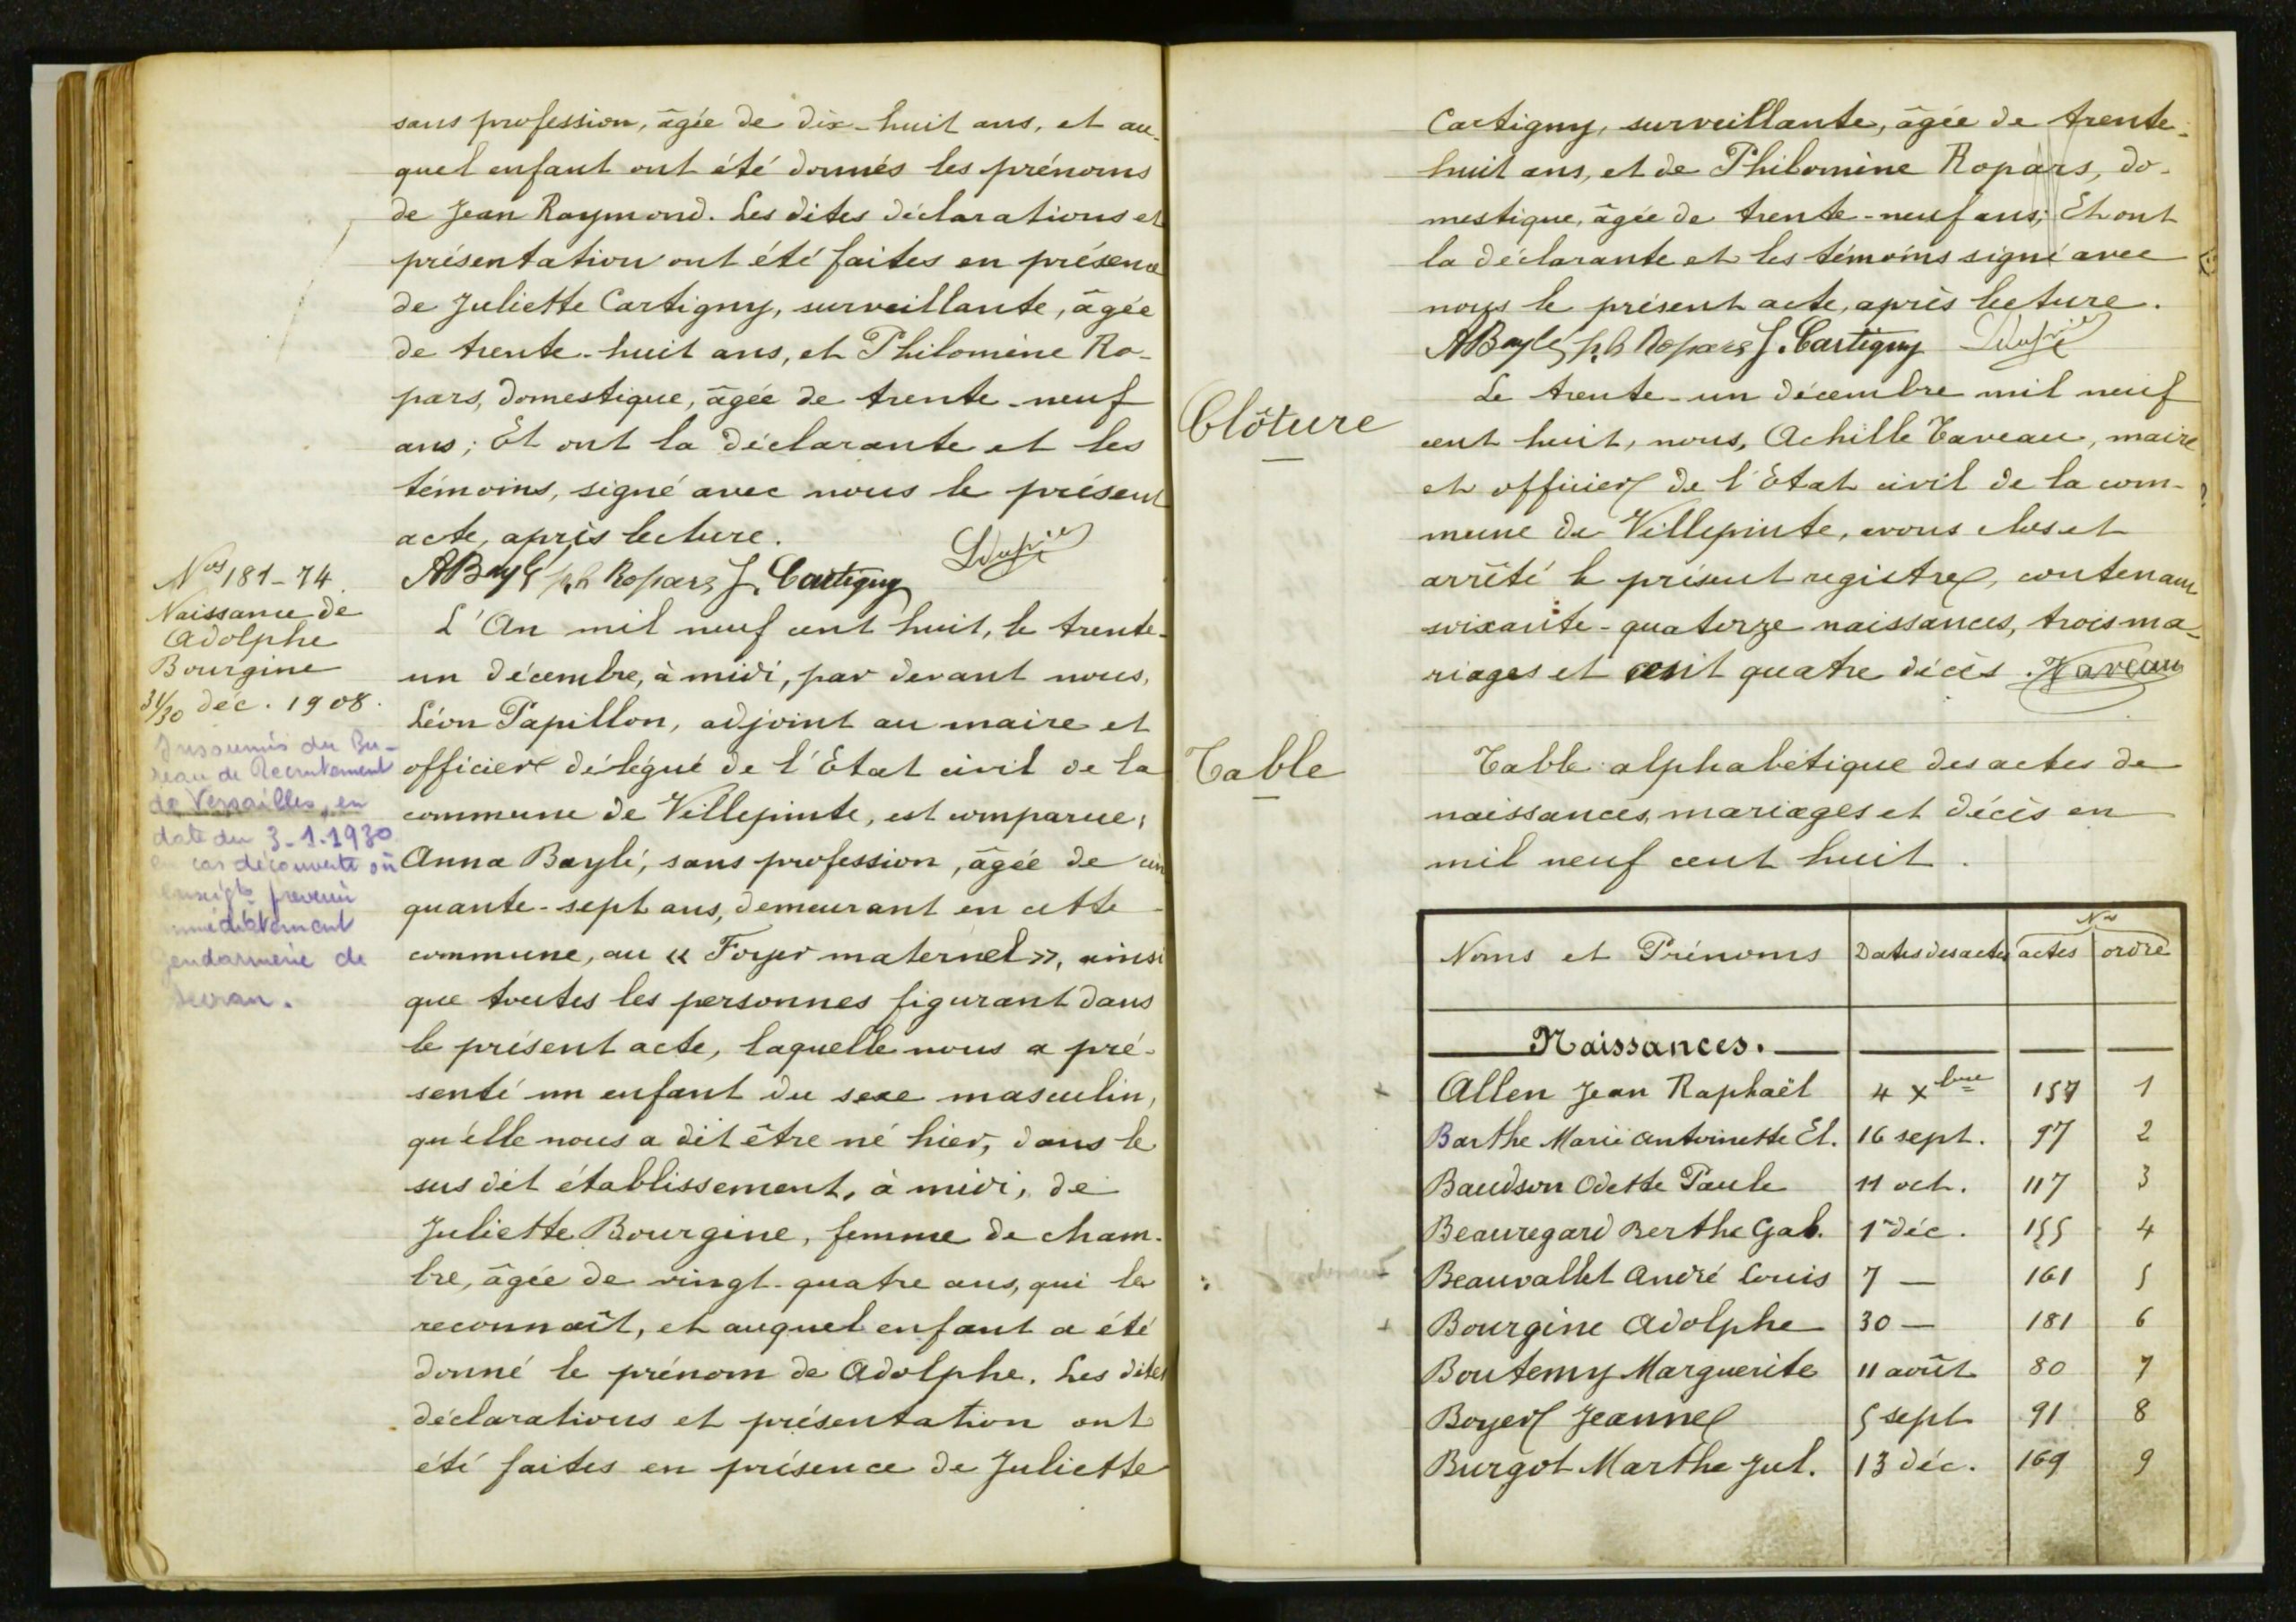 sans profession, âgée de dix-huit ans, et au-
quel enfant ont été donnés les prénoms
de Jean Raymond. Les dites déclarations et
présentation ont été faites en présence
de Juliette Cartigny, surveillante, âgée
de trente-huit ans, et Philomène Ro-
pars, domestique, âgée de trente-neuf
ans; Et ont la déclarante et les
témoins, signé avec nous le présent
acte, après lecture.
ABaylé ph Ropars J. Cartigny
Nos 181-74.
Naissance de
Adolphe
Bourgine
31/30 déc. 1908.
Insoumis du Bu-
reau de Recrutement
de Versailles, en
date du 3-1-1930
en cas découverte où
prevenir
immédiatement
gendarmerie de
Sevran.
L'An mil neuf cent huit, le trente-
un décembre, à midi, par devant nous,
Léon Papillon, adjoint au maire et
officier délégué de l'Etat civil de la
commune de Villepinte, est comparue,
Anna Baylé, sans profession, âgée de cin
quante-sept ans, demeurant en cette
commune, au « Foyer maternel », ainsi
que toutes les personnes figurant dans
le présent acte, laquelle nous a pré-
senté un enfant du sexe masculin,
qu'elle nous a dit être né hier, dans le
sus dit établissement, à midi, de
Juliette Bourgine, femme de cham-
bre, âgée de vingt-quatre ans, qui le
reconnaît, et auquel enfant a été
donné le prénom de Adolphe. Les dites
déclarations et présentation ont
été faites en présence de Juliette
Cartigny, surveillante, âgée de trente-
huit ans, et de Philomène Ropars, do-
mestique, âgée de trente-neuf ans; Et ont
la déclarante et les témoins signé avec
nous le présent acte, après lecture.
ABaylé ph Ropars J. Cartigny
Clôture
Le trente-un décembre mil neuf
cent huit, nous, Achille Taveau, maire
et officier de l'Etat civil de la com-
mune de Villepinte, avons clos et
arrêté le présent registre, contenant
soixante-quatorze naissances, trois ma-
riages et cent quatre décès. Taveau
Table
Table alphabétique des actes de
naissances, mariages et décès en
mil neuf cent huit.
Nos
Noms et Prénoms Dates des actes actes ordre
Naissances.
Allen Jean Raphaël 4 Xbre 157 1
Barthe Marie Antoinette El. 16 sept. 97 2
Baudson Odette Paule 11 oct. 117 3
Beauregard Berthe Gab. 1er déc. 155 4
Beauvallet André Louis 7 — 161 5
Bourgine Adolphe 30 — 181 6
Boutemy Marguerite 11 août 80 7
Boyer Jeanne 5 sept 91 8
Burgot Marthe Jul. 13 déc. 169 9